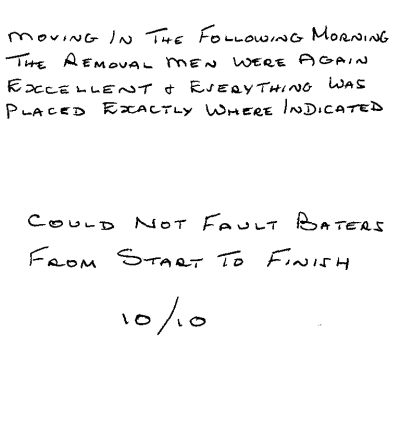 MOVING IN THE FOLLOWING MORNING
THE REMOVAL MEN WERE AGAIN
EXCELLENT & EVERYTHING WAS
PLACED EXACTLY WHERE INDICATED
COULD NOT FAULT BATERS
FROM START TO FINISH
10/10